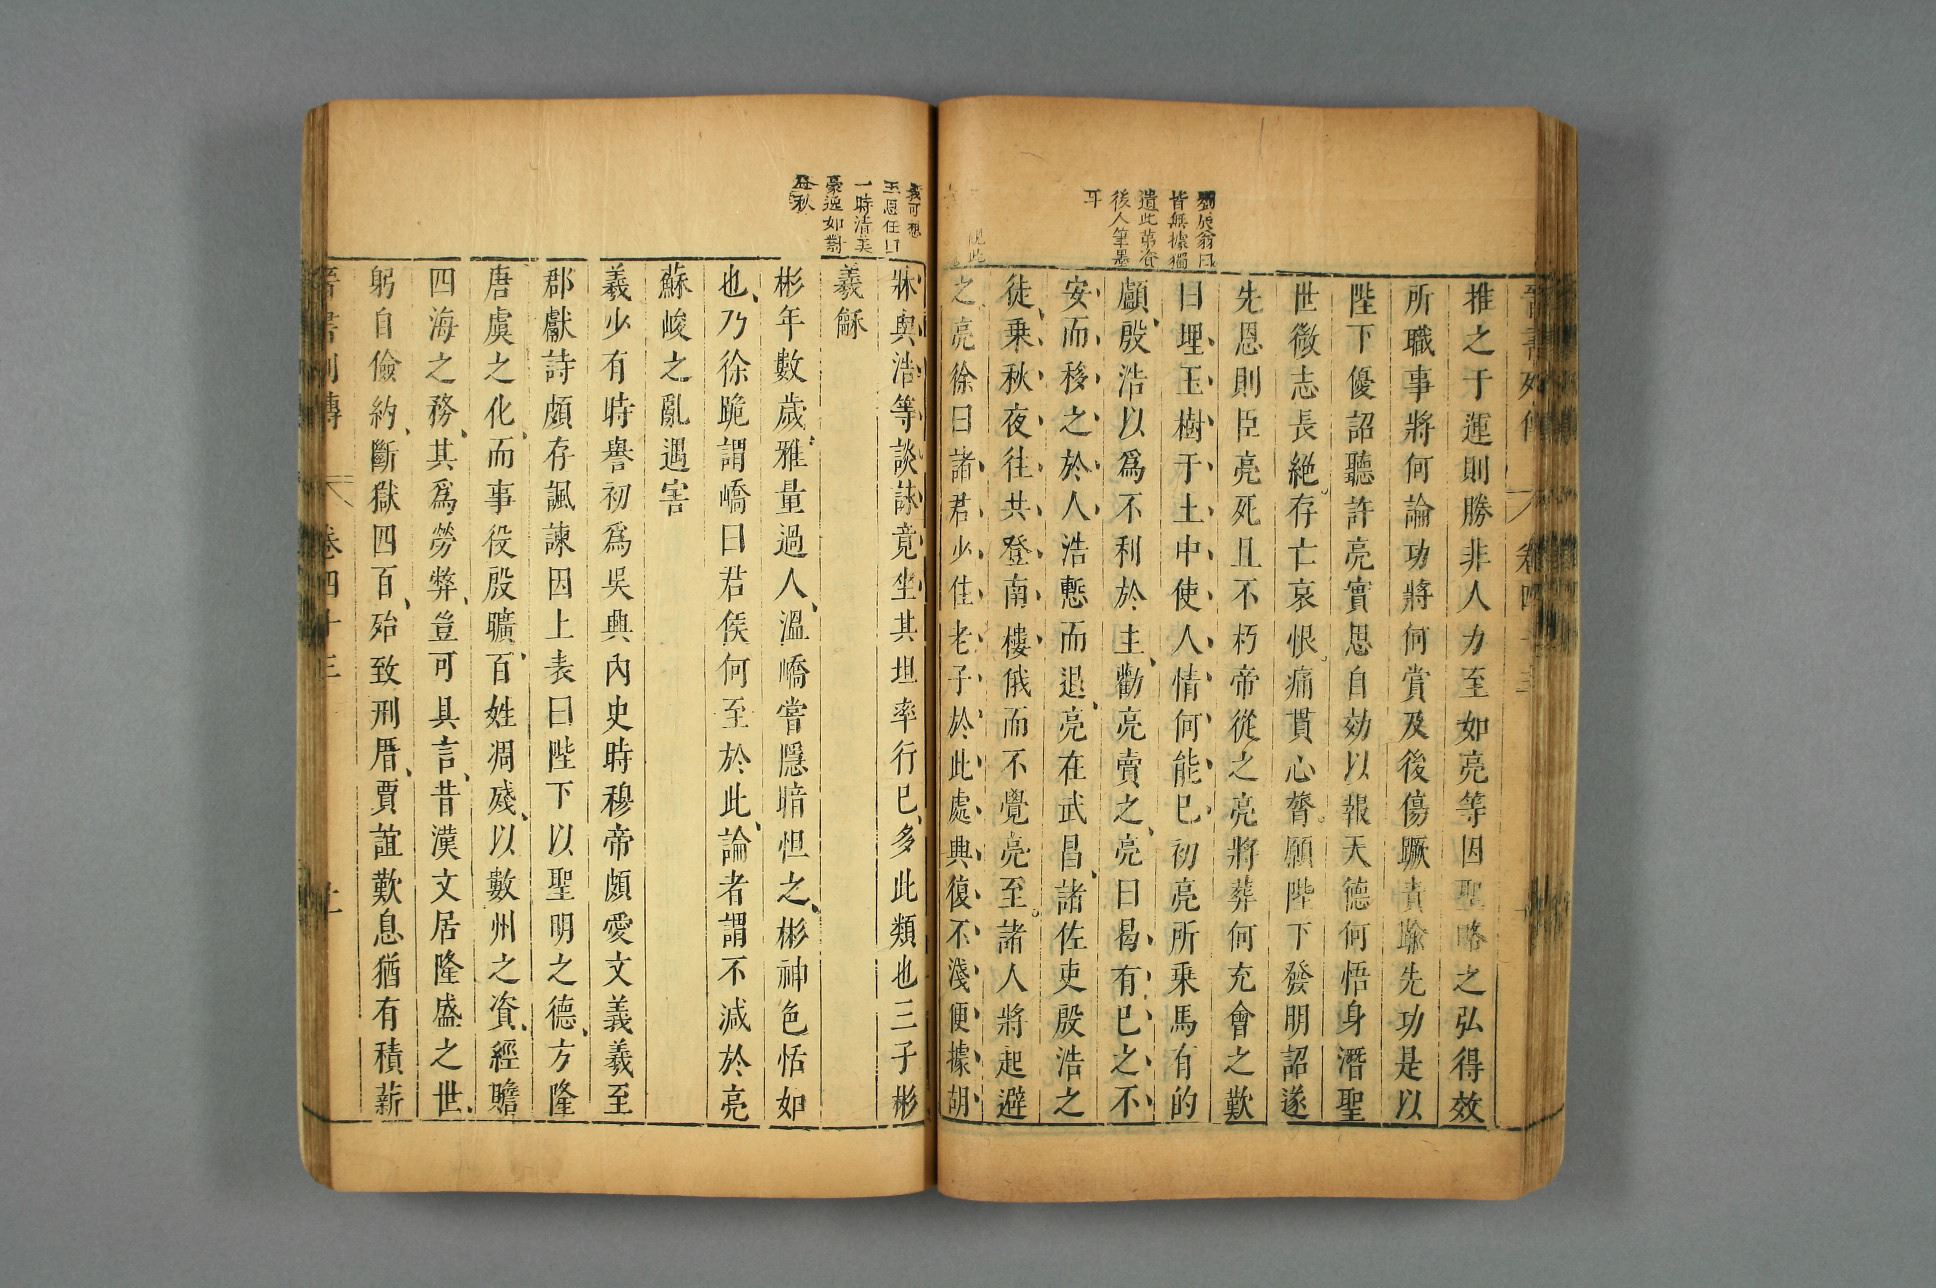 劉辰翁曰
皆無據獨
遺此第資
後人筆墨
耳
推之于運則勝非人力至如亮等因聖略之弘得效
所職事將何論功將何賞及後傷蹶責踰先功是以
陛下優詔聽許亮實思自効以報天德何悟身潛聖
世微志長絕存亡哀恨痛貫心膂願陛下發明詔遂
先恩則臣亮死且不朽帝從之亮將葬何充會之歎
曰埋玉樹于土中使人情何能已初亮所乘馬有的
顱殷浩以爲不利於主勸亮賣之亮曰曷有已之不
安而移之於人浩慙而退亮在武昌諸佐吏殷浩之
徒乘秋夜往共登南樓俄而不覺亮至諸人將起避
之亮徐曰諸君少住老子於此處興復不淺便據胡
義可想
一時清美
豪逸如對
牀與浩等談詠竟坐其坦率行已多此類也三子彬
羲龢
彬年數歲雅量過人溫嶠嘗隱暗怛之彬神色恬如
也乃徐跪謂嶠曰君侯何至於此論者謂不減於亮
蘇峻之亂遇害
羲少有時譽初爲吳興內史時穆帝頗愛文義羲至
郡獻詩頗存諷諫因上表曰陛下以聖明之德方隆
唐虞之化而事役殷曠百姓凋殘以數州之資經贍
四海之務其爲勞弊豈可具言昔漢文居隆盛之世
躬自儉約斷獄四百殆致刑厝賈誼歎息猶有積薪
晉書列傳 卷四十三